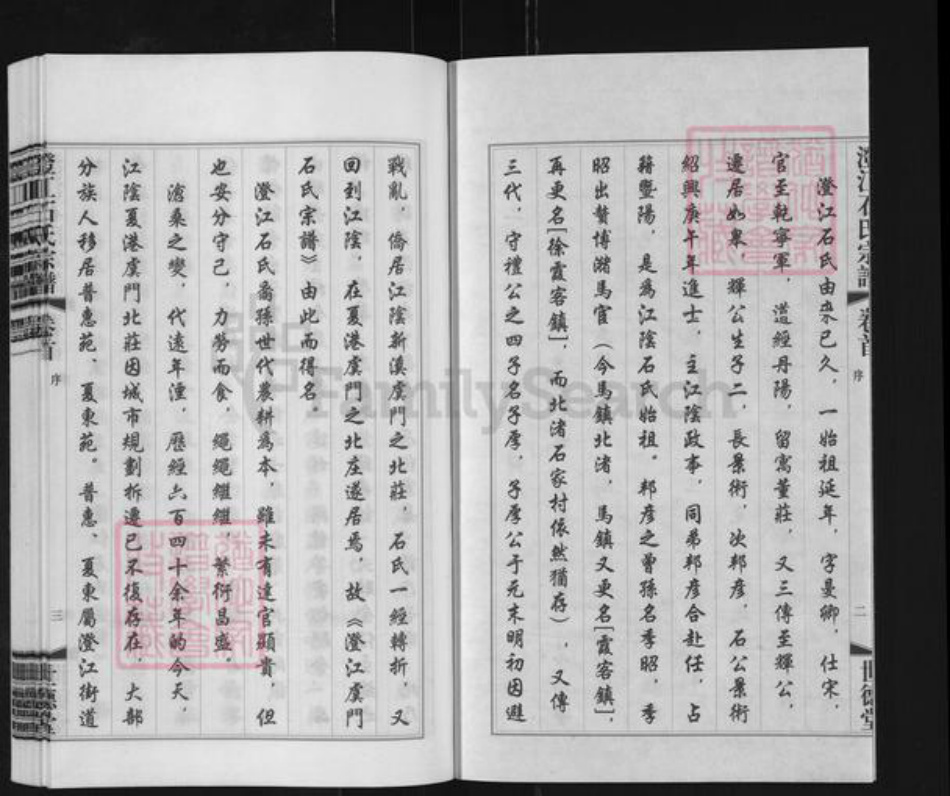 澄江石氏宗譜 卷首 序 二 世德堂
澄江石氏由來已久，一始祖延年，字曼卿，仕宋，
官至乾寧軍，道經丹陽，留寓董莊，又三傳至輝公，
遷居如皋，輝公生子二，長景術，次邦彥，石公景術
紹興庚午年進士，主江陰政事，同弟邦彥合赴任，占
籍暨陽，是為江陰石氏始祖。邦彥之曾孫名季昭，季
昭出贅博潴馬官（今馬鎮北渚，馬鎮又更名[霞客鎮]，
再更名[徐霞客鎮]，而北渚石家村依然猶存），又傳
三代，守禮公之四子名子厚，子厚公于元末明初因避
戰亂，僑居江陰新溪虞門之北莊，石氏一經轉折，又
回到江陰，在夏港虞門之北庄遂居焉，故《澄江虞門
石氏宗譜》由此而得名。
澄江石氏裔孫世代農耕為本，雖未有達官顯貴，但
也安分守己，力勞而食，繩繩繼繼，繁衍昌盛。
滄桑之變，代遠年湮，歷經六百四十余年的今天，
江陰夏港虞門北莊因城市規劃拆遷已不復存在，大部
分族人移居普惠苑、夏東苑。普惠、夏東屬澄江街道
澄江石氏宗譜 卷首 序 三 世德堂
FamilySearch